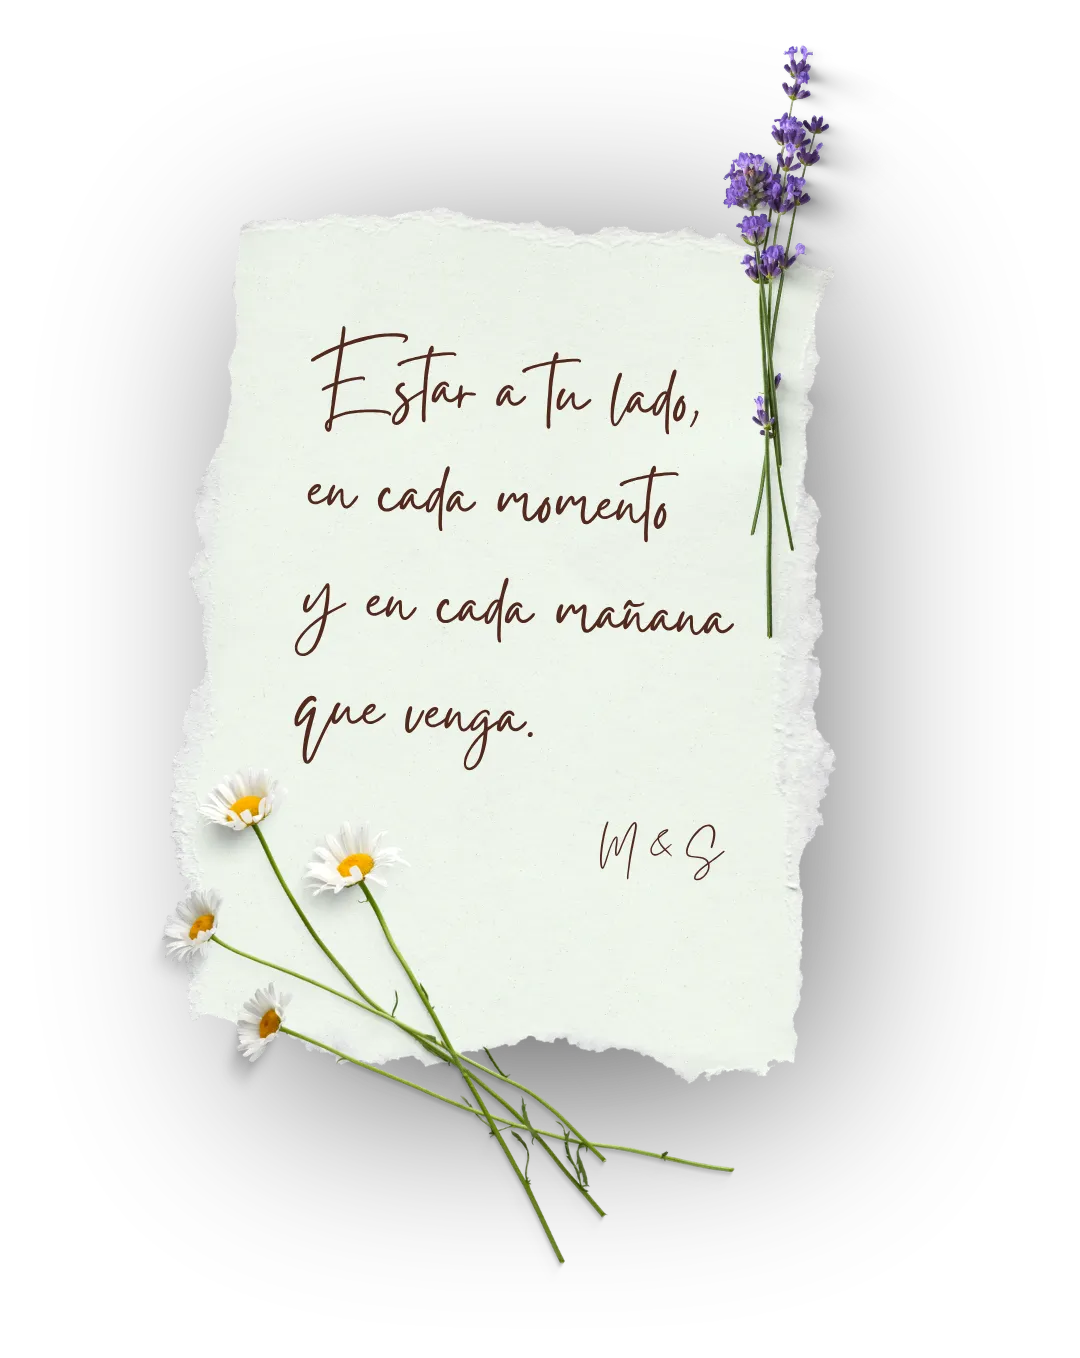 Estar a tu lado,
en cada momento
y en cada mañana
que venga.
M & S